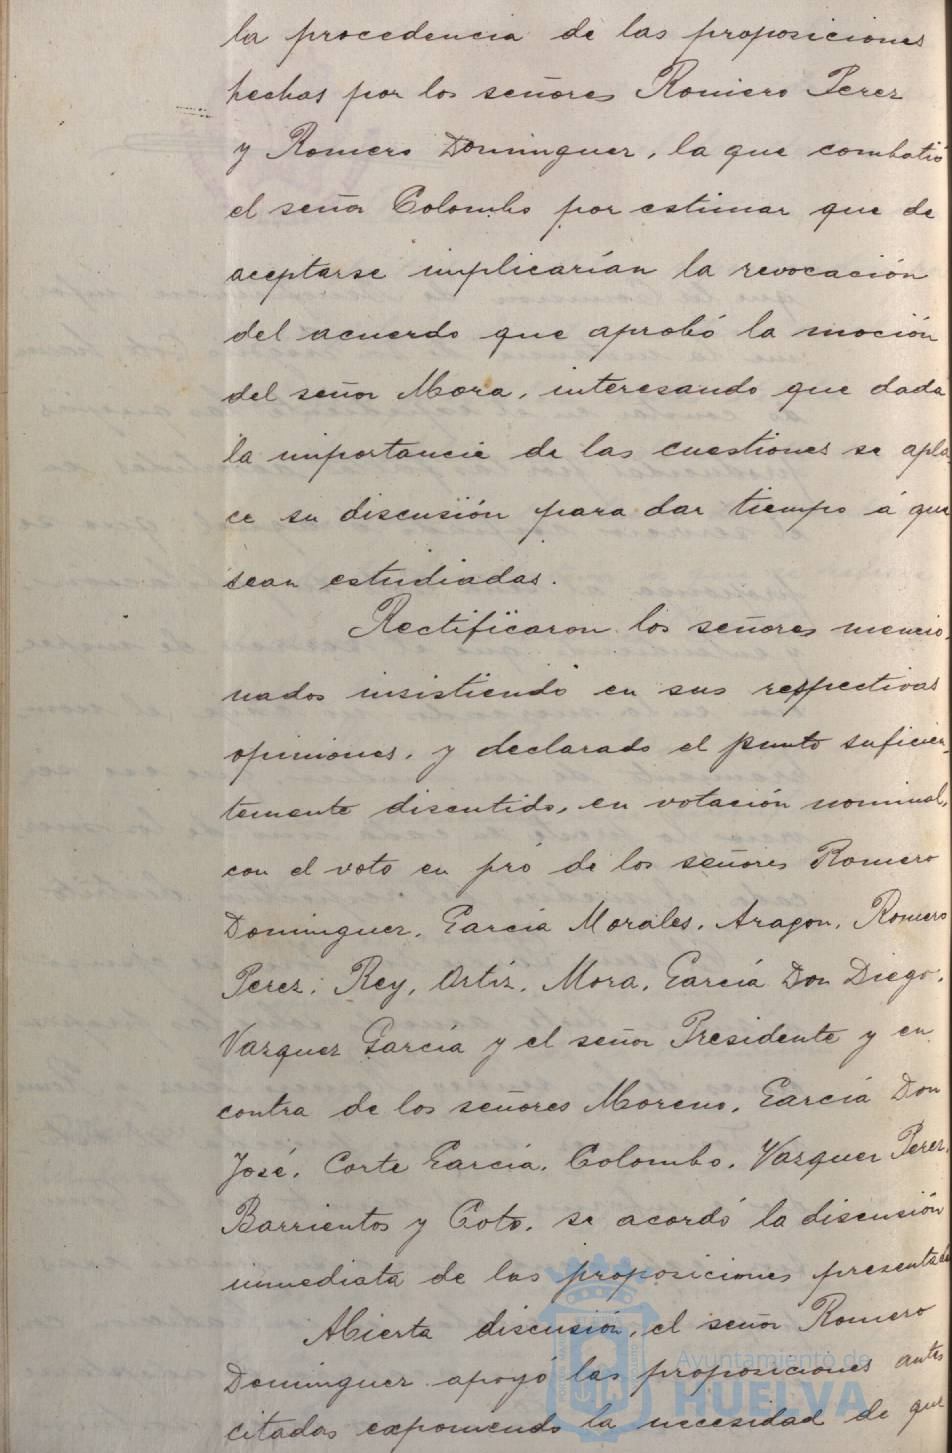 la procedencia de las proposiciones
hechas por los señores Romero Perez
y Romero Dominguez, la que combatió
el señor Colombo por estimar que de
aceptarse implicarían la revocación
del acuerdo que aprobó la moción
del señor Mora, interesando que dada
la importancia de las cuestiones se apla
ce su discusión para dar tiempo á que
sean estudiadas.
Rectificaron los señores mencio-
nados insistiendo en sus respectivas
opiniones, y declarado el punto suficien-
temente discutido, en votación nominal,
con el voto en pró de los señores Romero
Dominguez, Garcia Morales, Aragon, Romero
Perez, Rey, Ortiz, Mora, García Don Diego,
Vazquez García y el señor Presidente y en
contra de los señores Moreno, García Don
José, Corte Garcia, Colombo, Vazquez Perez,
Barrientos y Coto, se acordó la discusión
inmediata de las proposiciones presentadas
Abierta discusión, el señor Romero
Dominguez apoyó las proposiciones antes
citadas exponiendo la necesidad de que
Ayuntamiento de
HUELVA